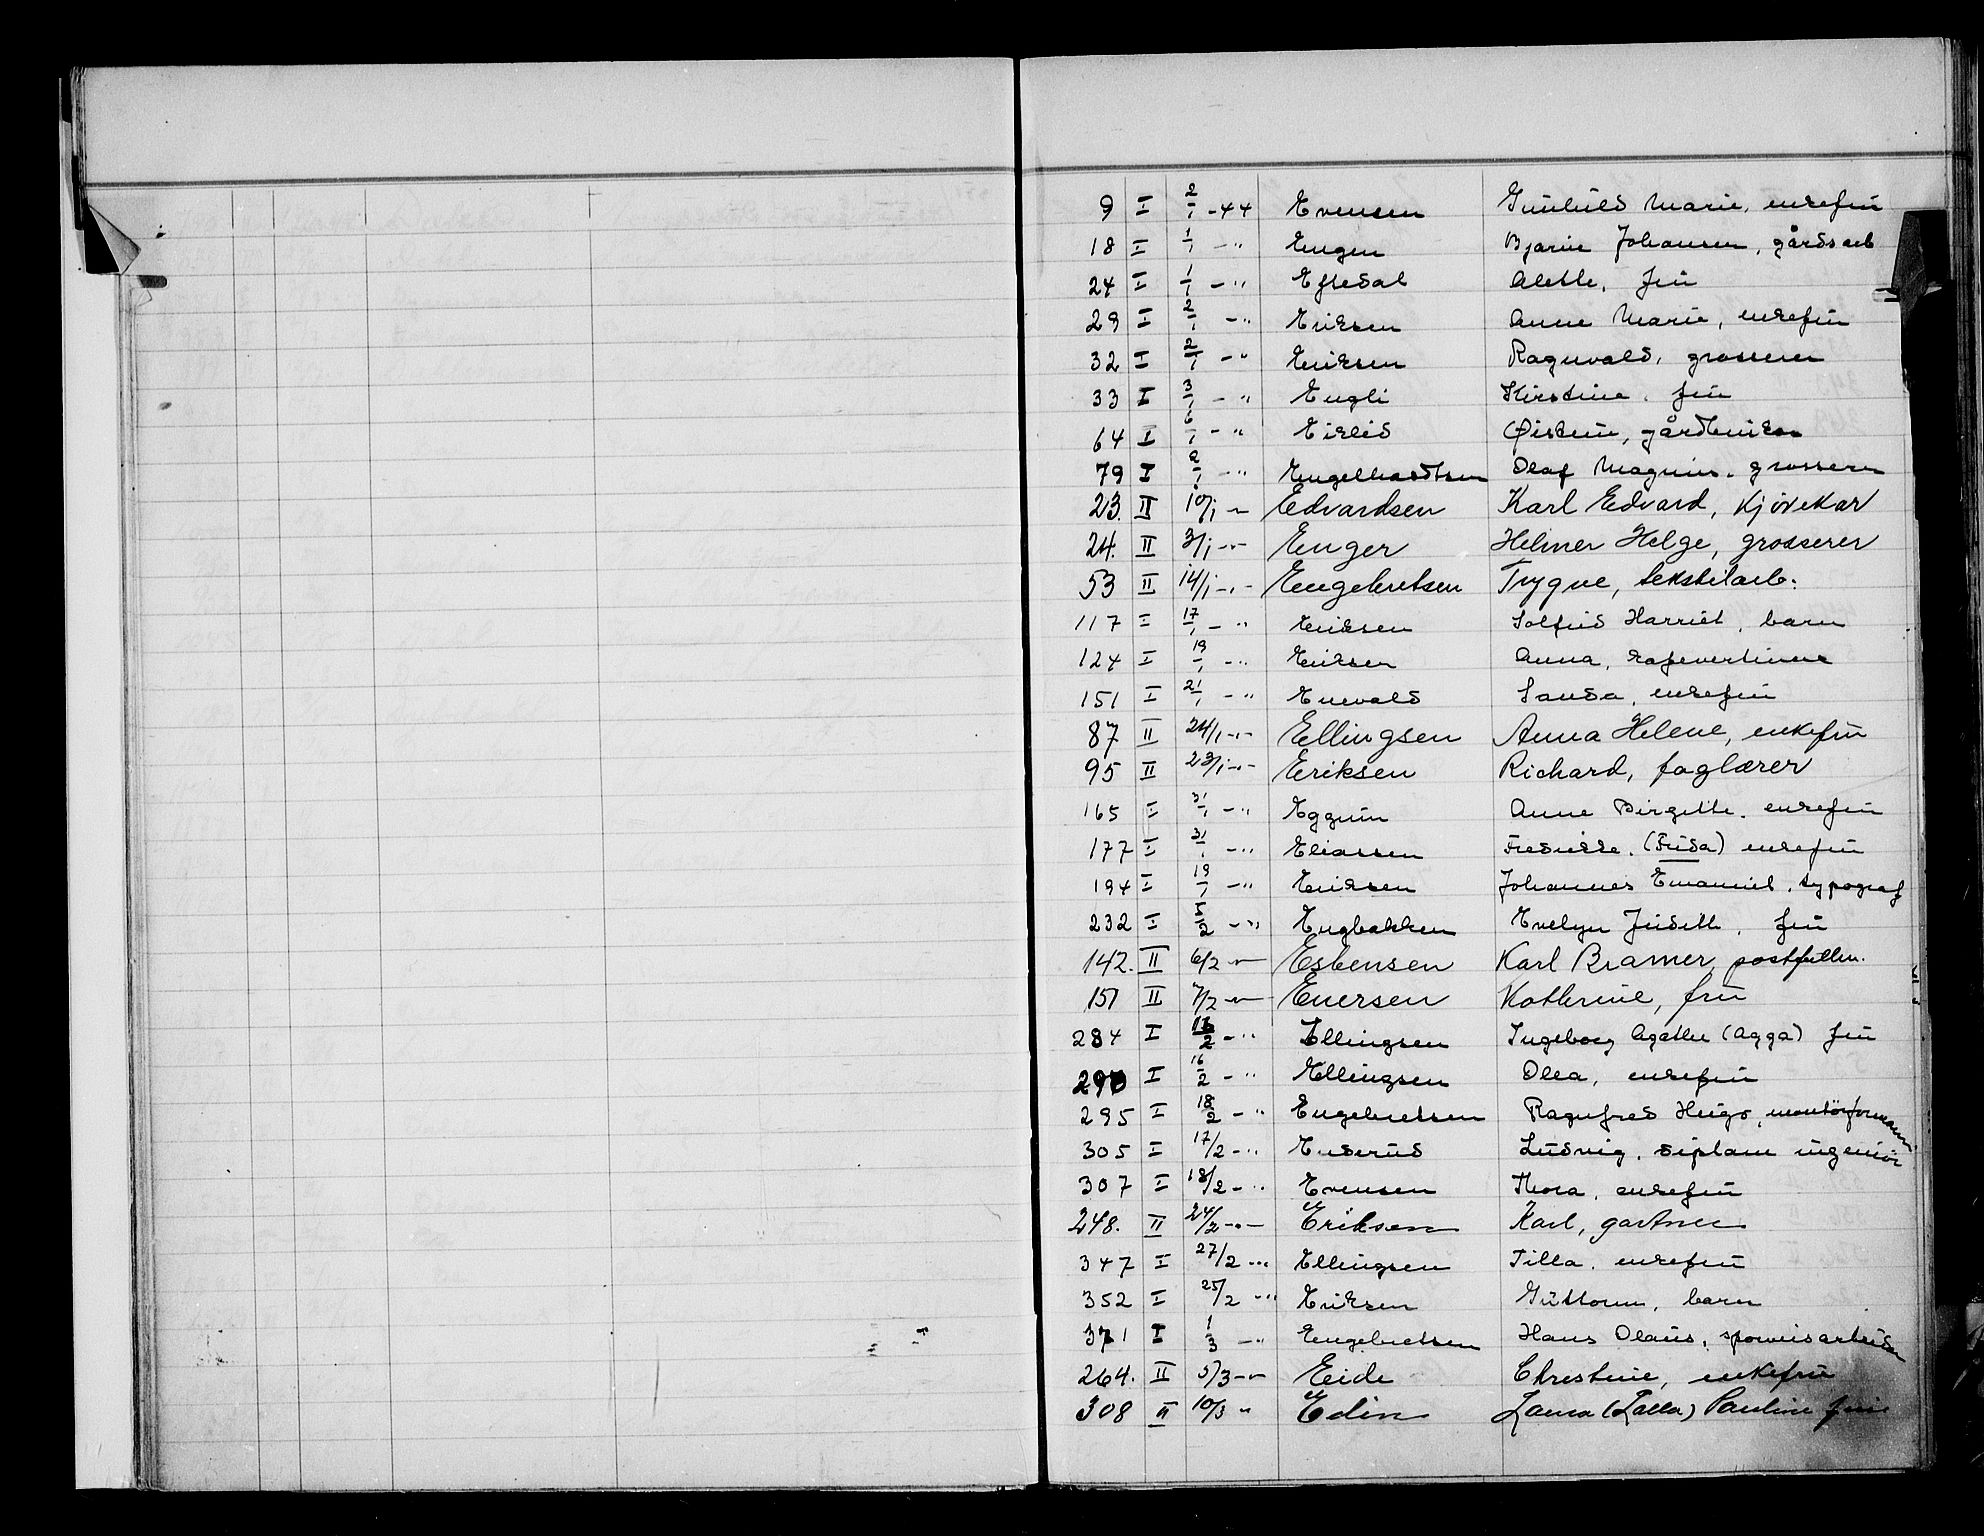 9 I 2/1 -44 Evensen Gunhild Marie, enkefru
18 I 1/1 - " Engen Bjarne Johansen, gårdsarb
24 I 1/1 - " Eftedal Alette, fru
29 I 2/1 - " Eriksen Anne Marie, enkefru
32 I 2/1 - " Eriksen Ragnvald, grosserer
33 I 3/1 - " Engli Kirstine, fru
64 I 6/1 - " Eiklid Øistein,
79 I 2/1 - " Engelhardtsen Olaf Magnus, grosserer
23. II 10/1 - " Edvardsen Karl Edvard, kjørekar
24. II 3/1 - " - Enger Helmer Helge, grosserer
53 II 14/1 - " - Engebretsen Trygve, tekstilarb.
117 I 17/1 - " Eriksen Solfrid Harriet, barn
124 I 19/1 - " Eriksen Anna,
151 I 21/1 - " Enevald Sanda, enkefru
87 II 24/1 - " - Ellingsen Anna Helene, enkefru
95 II 23/1 - " - Eriksen Richard, faglærer
165 I 31/1 - " Eggum Anne Birgitte, enkefru
177 I 31/1 - " Eliassen Fredrikke, (Frida) enkefru
194 I 19/1 - " Eriksen Johannes Emanuel, typograf
232 I 5/2 - " Engbakken Evelyn Judith, fru
142. II 6/2 - " Esbensen Karl Bramer,
151 II 7/2 - " - Enersen Kathrine, fru
284 I /2 - " Ellingsen Ingeborg Agathe (Agga) fru
290 I 16/2 - " Ellingsen Olea, enkefru
295 I 18/2 - " Engebretsen Ragnfred Hugo, montørformann
305 I 17/2 - " Enderud Ludvig, diplom ingeniør
307 I 18/2 - " Evensen Thora, enkefru
248. II 24/2 - " - Eriksen Karl, gartner
347 I 27/2 - " Ellingsen Tilla, enkefru
352 I 25/2 - " Eriksen Guttorm, barn
371 I 1/3 - " Engebretsen Hans Olaus, sporveisarbeider
264. II 5/3 - " Eide Christine, enkefru
308 II 10/3 " Edin Laura (Lalla) Pauline fru